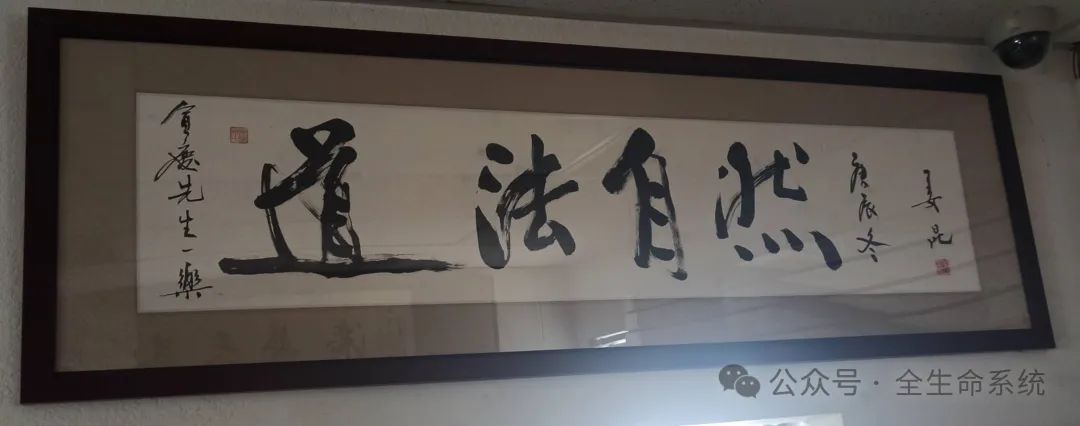 宜庆先生一乐
道法自然
庚辰冬
姜昆
公众号·全生命系统